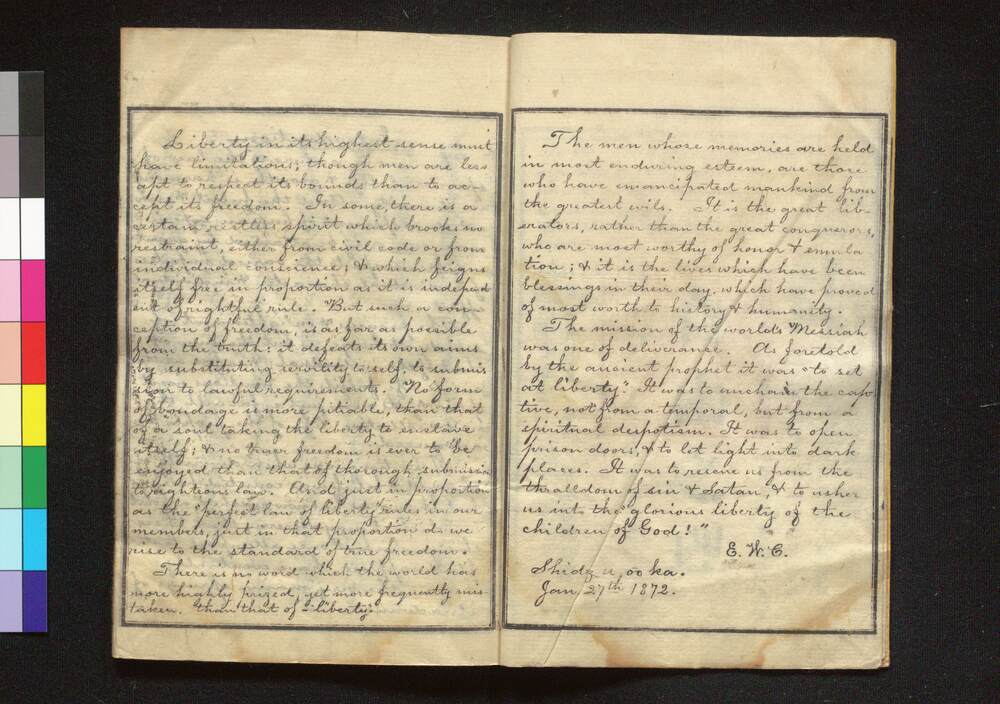 Liberty in its highest sense must
have limitations; though men are less
apt to respect its bounds than to ac-
cept its freedom. In some, there is a
certain restless spirit which brooks no
restraint, either from civil code or from
individual conscience; & which feigns
itself free in proportion as it is independ
ent of rightful rule. But such a con-
ception of freedom, is as far as possible
from the truth: it defeats its own aims
by substituting servility to self, to submis
sion to lawful requirements. No form
of bondage is more pitiable, than that
of a soul taking the liberty to enslave
itself; & no truer freedom is ever to be
enjoyed than that of thorough submission
to righteous law. And just in proportion
as the "perfect law of liberty" rules in our
members, just in that proportion do we
rise to the standard of true freedom.
There is no word which the world has
more highly prized, yet more frequently mis-
taken, than that of "liberty."
The men whose memories are held
in most enduring esteem, are those
who have emancipated mankind from
the greatest evils. It is the great lib-
erators, rather than the great conquerors,
who are most worthy of honor & emula
tion; & it is the lives which have been
blessings in their day, which have proved
of most worth to history & humanity.
The mission of the world's Messiah
was one of deliverance. As foretold
by the ancient prophet it was "to set
at liberty." It was to unchain the cap
tive, not from a temporal, but from a
spiritual despotism. It was to open
prison doors, & to let light into dark
places. It was to rescue us from the
thralldom of sin & Satan, & to usher
us into the "glorious liberty of the
children of God!"
E. W. C.
Shidz u oo ka.
Jan 27th 1872.